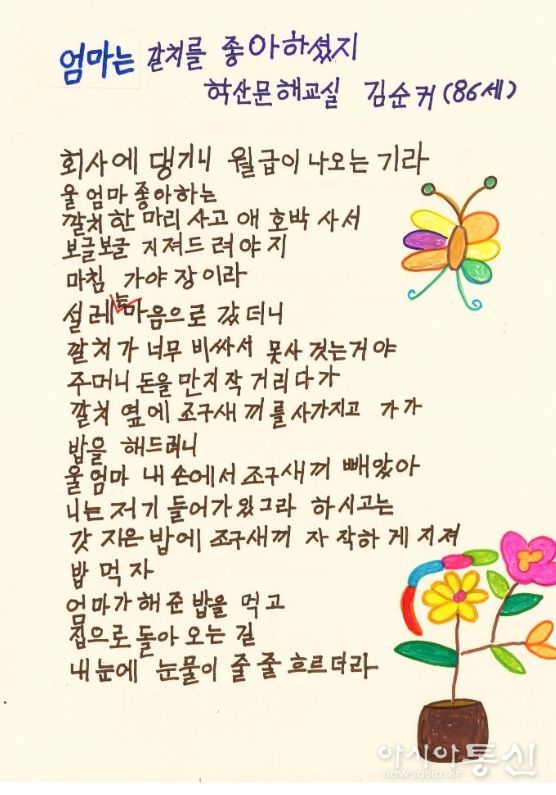 엄마는 갈치를 좋아하셨지
학산문해교실 김순커(86세)
회사에 댕기니 월급이 나오는 기라
울 엄마 좋아하는
깔치 한 마리 사고 애 호박 사서
보글보글 지져드려야지
마침 가야장이라
설레는 마음으로 갔더니
깔치가 너무 비싸서 못사 것는거야
주머니 돈을 만지작 거리다가
깔치 옆에 조구새끼를 사가지고 가가
밥을 해드려니
울엄마 내 손에서 조구새끼 빼았아
니는 저기 들어가 있그라 하시고는
갓 지은 밥에 조구새끼 자작하게 지져
밥 먹자
엄마가 해 준 밥을 먹고
집으로 돌아 오는 길
내 눈에 눈물이 줄 줄 흐르더라
아시아통신
newsasia.kr